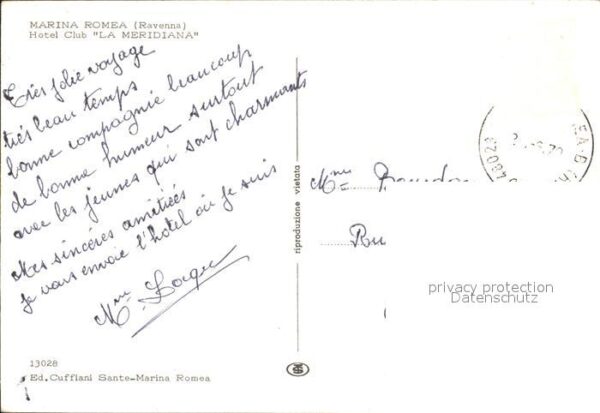 MARINA ROMEA (Ravenna)
Hotel Club "LA MERIDIANA"
Très jolie voyage
très beau temps
bonne compagnie beaucoup
de bonne humeur surtout
avec les jeunes qui sont charmants
Mes sincères amitiées
je vous envoie l'hotel où je suis
Mme
13028
Ed. Cuffiani Sante-Marina Romea
riproduzione vietata
Mme
48023
privacy protection
Datenschutz